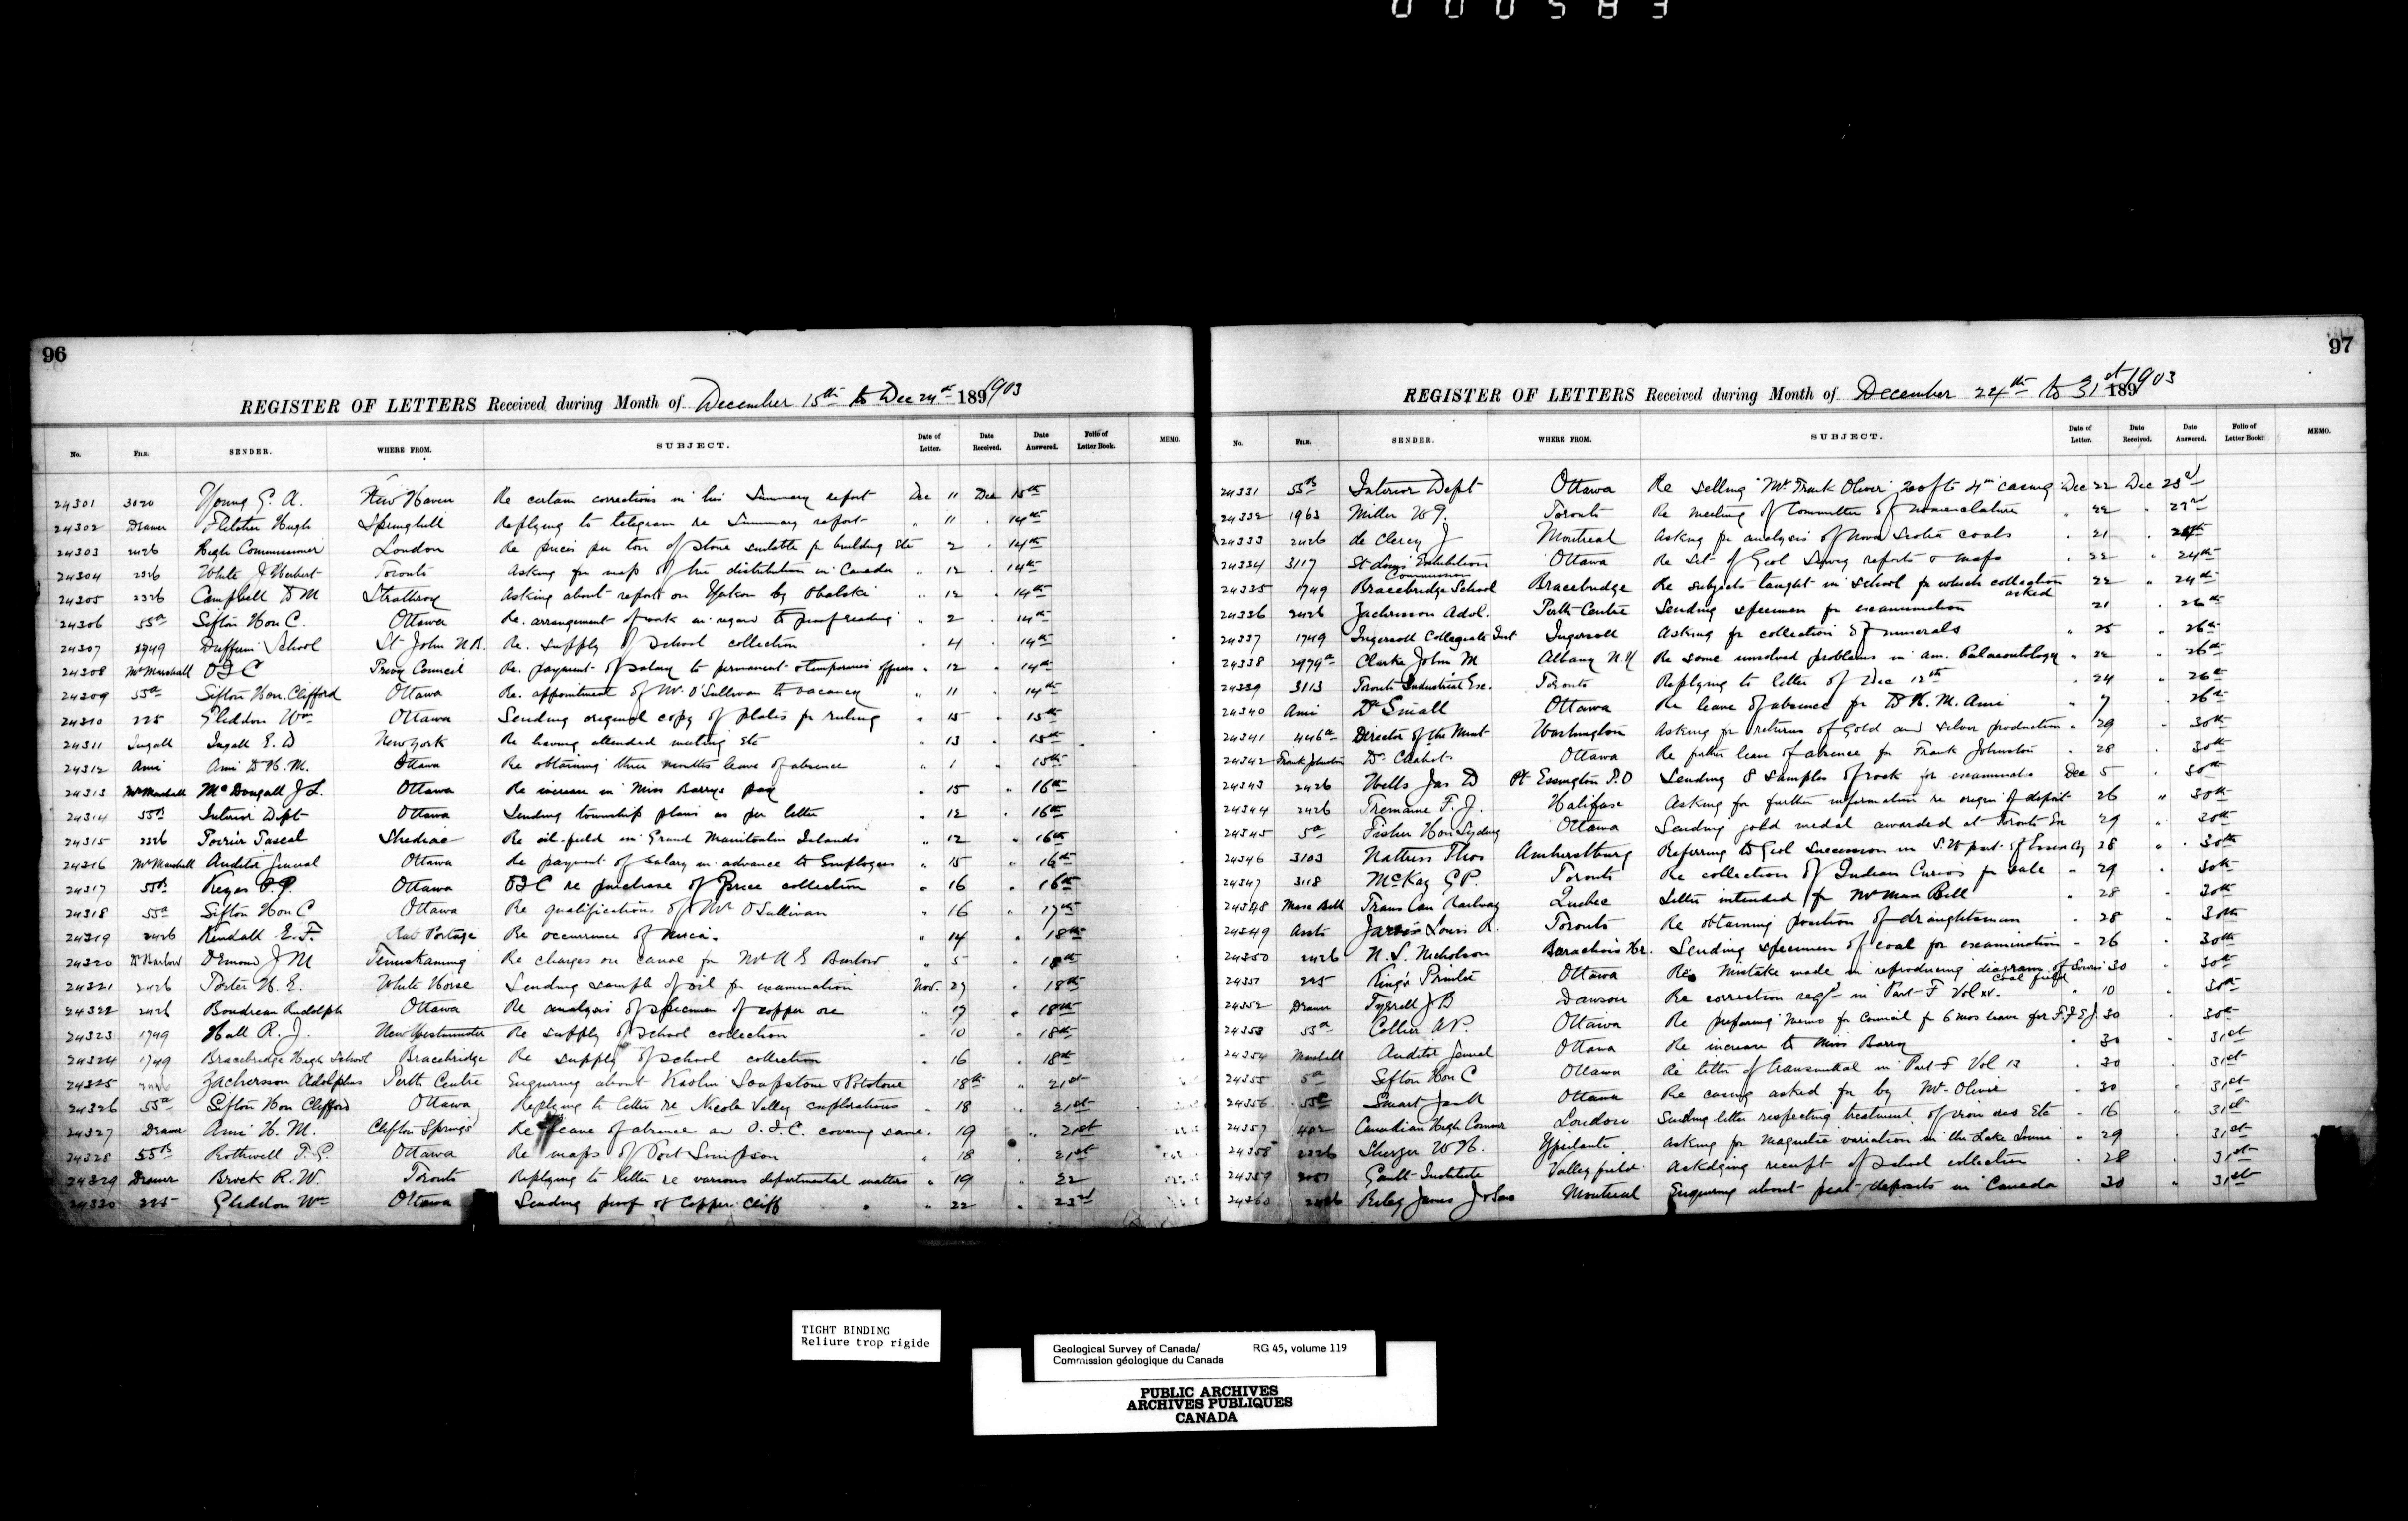 000583
96
REGISTER OF LETTERS Received during Month of December 15th to Dec 24th 1891903
No. FILE. SENDER. WHERE FROM. SUBJECT. Date of Letter. Date Received. Date Answered. Folio of Letter Book. MEMO.
24301 3020 Young G. A. New Haven Re certain corrections in his Summary report Dec 11 Dec 15th
24302 Drawer Fletcher Hugh Springhill Replying to telegram re Summary report " 11 " 14th
24303 2426 High Commissioner London Re prices per ton of stone suitable for building Etc 2 " 14th
24304 2326 White J Herbert Toronto Asking for map of distribution in Canada " 12 " 14th
24305 2326 Campbell D M Strathroy Asking about report on Yukon by Obalski " 12 14th
24306 55a Sifton Hon C. Ottawa Re. arrangement of work in regard to proof reading " 2 " 14th
24307 1749 Dufferin School St John N.B. Re. supply of school collection " 4 " 14th
24308 Mr Marshall O I C Privy Council Re. payment of salary to permanent & temporary officers " 12 " 14th
24309 55a Sifton Hon. Clifford Ottawa Re. appointment of Mr. O'Sullivan to vacancy " 11 " 14th
24310 225 Gliddon Wm Ottawa Sending original copy of plates for ruling " 15 " 15th
24311 Ingall Ingall E. D New York Re having attended meeting Etc " 13 " 15th
24312 Ami Ami Dr H. M. Ottawa Re obtaining three months leave of absence " 1 " 15th
24313 Mr Marshall McDougall J L. Ottawa Re increase in Miss Barrys pay " 15 " 16th
24314 55B Interior Dept Ottawa Sending township plans as per letter " 12 " 16th
24315 2326 Poirier Pascal Shediac Re oil-field in Grand Manitoulin Islands " 12 " 16th
24316 Mr Marshall Auditor General Ottawa Re payment of salary in advance to Employees " 15 " 16th
24317 55B Keyes P. G. Ottawa OIC re purchase of Price collection " 16 " 16th
24318 55a Sifton Hon C Ottawa Re qualifications of Mr O'Sullivan " 16 " 17th
24319 2426 Kendall E. F. Rat Portage Re occurrence of mica. " 14 " 18th
24320 Dr Barlow Demond J M Temiskaming Re charges on canoe for Mr A E Barlow " 5 " 18th
24321 2426 Porter H. E. White Horse Sending sample of oil for examination Nov. 27 " 18th
24322 2426 Boudreau Rudolph Ottawa Re analysis of specimen of copper ore " 17 " 18th
24323 1749 Hall R. J. New Westminster Re supply of school collection " 10 " 18th
24324 1749 Bracebridge High School Bracebridge Re supply of school collection " 16 18th
24325 2426 Zachersson Adolphus Perth Centre Enquiring about Kaolin Soapstone & Potstone 18th " 21st
24326 55a Sifton Hon Clifford Ottawa Replying to letter re Nicola Valley explorations " 18 " 21st
24327 Drawer Ami H. M. Clifton Springs Re leave of absence an O. I. C. covering same. " 19 " 21st
24328 55B Rothwell T. G. Ottawa Re maps of Port Simpson " 18 " 21st
24329 Drawer Brock R. W. Toronto Replying to letter re various departmental matters " 19 " 22
24330 225 Gliddon Wm Ottawa Sending proof of Copper Cliff " 22 " 23rd
97
REGISTER OF LETTERS Received during Month of December 24th to 31st 1891903
No. FILE. SENDER. WHERE FROM. SUBJECT. Date of Letter. Date Received. Date Answered. Folio of Letter Book. MEMO.
24331 55B Interior Dept Ottawa Re selling Mr Frank Oliver 200 ft 4in casing Dec 22 Dec 23d
24332 1963 Miller W G. Toronto Re meeting of Committee of nomenclature " 22 " 23rd
24333 2426 de Clercy J Montreal Asking for analysis of Nova Scotia coals " 21 " 24th
24334 3117 St Louis Exhibition Commission Ottawa Re Set of Geol Survey reports & maps " 22 " 24th
24335 1749 Bracebridge School Bracebridge Re subjects taught in school for which collection asked 22 " 24th
24336 2426 Zachrisson Adol. Perth Centre Sending specimen for examination 21 " 26th
24337 1749 Ingersoll Collegiate Inst Ingersoll Asking for collection of minerals " 25 " 26th
24338 2979a Clarke John M Albany N.Y Re some unsolved problems in am. Palaeontology " 22 " 26th
24339 3113 Toronto Industrial Exc. Toronto Replying to letter of Dec 12th " 24 " 26th
24340 Ami Dr Small Ottawa Re leave of absence for Dr H. M. Ami " 7 " 26th
24341 446a Director of the Mint Washington Asking for returns of Gold and silver production " 29 " 30th
24342 Frank Johnston Dr. Chabot Ottawa Re further leave of absence for Frank Johnston " 28 " 30th
24343 2426 Wells Jas D Pt Essington P.O Sending 8 samples of rock for examinatn Dec 5 " 30th
24344 2426 Tremaine F. J. Halifax Asking for further information re origin of deposit 26 " 30th
24345 5a Fisher Hon Sydney Ottawa Sending gold medal awarded at Toronto Ex 29 " 30th
24346 3103 Nattress Thos Amherstburg Referring to Geol Succession in S.W part of Essex Cy 28 " 30th
24347 3118 McKay G P. Toronto Re collection of Indian Curios for sale " 29 " 30th
24348 Mese Bell Trans Can Railway Quebec Letter intended for Mr Bell " 28 " 30th
24349 Assts Jarvis Louis R. Toronto Re obtaining position of draughtsman " 28 " 30th
24350 2426 N. L. Nicholson Barachois Hr. Sending specimen of coal for examination " 26 " 30th
24351 225 King's Printer Ottawa Re Mistake made in reproducing diagram of Souris coal field 30 " 30th
24352 Drawer Tyrrell J B Dawson Re correction reqd in Part F Vol XV. " 10 " 30th
24353 55a Collier A P. Ottawa Re preparing memo for Council for 6 mos leave for F. J E J. 30 " 30th
24354 Marshall Auditor General Ottawa Re increase to Miss Barry " 30 " 31st
24355 5a Sifton Hon C Ottawa Re letter of transmittal in Part S Vol 13 " 30 31st
24356 55C Smart Jas A Ottawa Re casing asked for by Mr. Oliver " 30 " 31st
24357 402 Canadian High Commr London Sending letter respecting treatment of iron ores Etc " 16 " 31st
24358 2326 Sherzer W H. Ypsilanti Asking for magnetic variation in the Lake " 29 " 31st
24359 Gault Institute Valleyfield Ackdging receipt of school collection " 28 " 31st
24360 2426 Riley James J & Sons Montreal Enquiring about peat deposits in Canada 30 " 31st
TIGHT BINDING
Reliure trop rigide
Geological Survey of Canada/ RG 45, volume 119
Commission géologique du Canada
PUBLIC ARCHIVES
ARCHIVES PUBLIQUES
CANADA